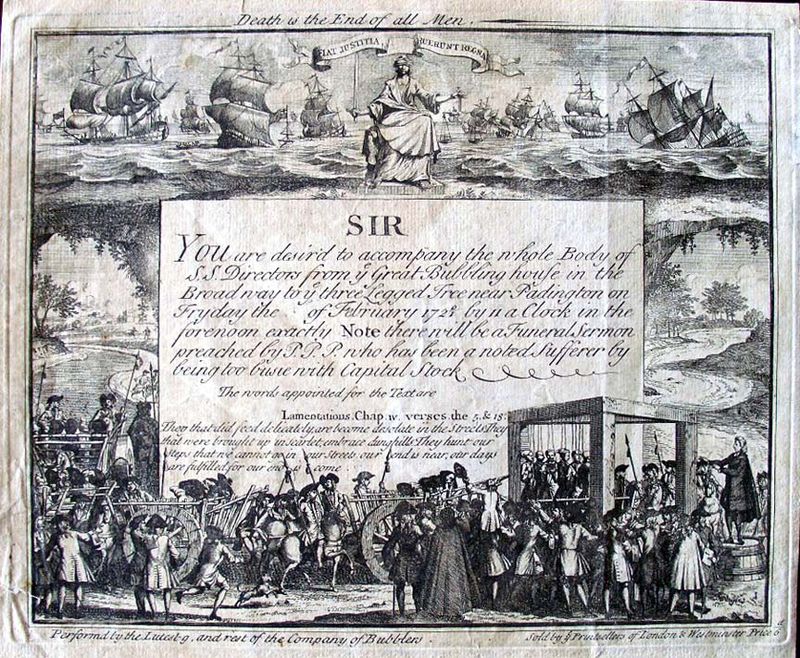 Death is the End of all Men.
FIAT JUSTITIA RUERUNT REGNA
SIR
You are desir'd to accompany the whole Body of
S.S. Directors from yᵉ Great Bubbling house in the
Broad way to yᵉ three Legged Tree near Padington on
Fryday the of February 172 by 11 a Clock in the
forenoon exactly Note there will be a Funeral Sermon
preached by P.P.P. who has been a noted Sufferer by
being too busie with Capital Stock
The words appointed for the Text are
Lamentations. Chap. iv. verses. the 5. & 18.
They that did feed delicately, are become desolate in the Streets They
that were brought up in scarlet, embrace dunghills They hunt our
steps that we cannot go in our Streets our end is near, our days
are fulfilled for our end is come.
Perform'd by the Lutest-g. and rest of the Company of Bubblers.
Sold by yᵉ Printsellers of London & Westminster Price 6ᵈ